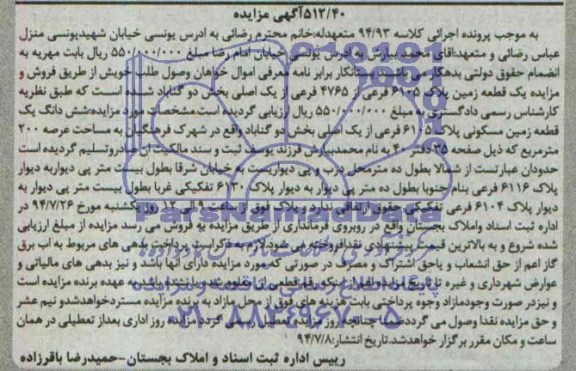 ۵۱۲/۴۰آگهی مزایده
به موجب پرونده اجرائی کلاسه ۹۴/۹۳ متعهدله:خانم محترم رضائی به ادرس یونسی خیابان شهیدیونسی منزل
عباس رضائی و متعهد:اقای محمد بیارش به ادرس یونسی خیابان امام رضا مبلغ ۵۵۰/۰۰۰/۰۰۰ ریال بابت مهریه به
انضمام حقوق دولتی بدهکار می باشد بستانکار برابر نامه معرفی اموال خواهان وصول طلب خویش از طریق فروش و
مزایده یک قطعه زمین پلاک ۶۱۰۵ فرعی از ۴۷۶۵ فرعی از یک اصلی بخش دو گناباد شده است که طبق نظریه
کارشناس رسمی دادگستری به مبلغ ۵۵۰/۰۰۰/۰۰۰ ریال ارزیابی گردیده است.مشخصات مورد مزایده:شش دانگ یک
قطعه زمین مسکونی پلاک ۶۱۰۵ فرعی از یک اصلی بخش دو گناباد واقع در شهرک فرهنگیان به مساحت عرصه ۲۰۰
مترمربع که ذیل صفحه ۳۵ دفتر ۴۰ به نام محمدبیارش فرزند یوسف ثبت و سند مالکیت ان صادروتسلیم گردیده است
حدودان عبارتست از شمالا بطول ده مترمحل درب و پی دیواریست به خیابان شرقا بطول بیست متر پی دیواربه دیوار
پلاک ۶۱۱۶ فرعی بنام جنوبا بطول ده متر پی دیوار به دیوار پلاک ۶۱۳۰ تفکیکی غربا بطول بیست متر پی دیوار به
دیوار پلاک ۶۱۰۴ فرعی تفکیکی حقوق ارتفاقی ندارد و پلاک فوق از ساعت ۹ الی ۱۲ روز یکشنبه مورخ ۹۴/۷/۲۶ در
اداره ثبت اسناد واملاک بجستان واقع در روبروی فرمانداری از طریق مزایده به فروش می رسد مزایده از مبلغ ارزیابی
شده شروع و به بالاترین قیمت پیشنهادی نقدا فروخته می شود.لازم به ذکراست پرداخت بدهی های مربوط به اب برق
گاز اعم از حق انشعاب و یاحق اشتراک و مصرف در صورتی که مورد مزایده دارای آنها باشد و نیز بدهی های مالیاتی و
عوارض شهرداری و غیره تا تاریخ مزایده اعم از اینکه رقم قطعی ان معلوم شده یا نشده باشد به عهده برنده مزایده است
و نیزدر صورت وجودمازاد وجوه پرداختی بابت هزینه های فوق از محل مازاد به برنده مزایده مسترد خواهدشدو نیم عشر
و حق مزایده نقدا وصول می گردد.ضمنا چنانچه روز مزایده تعطیل رسمی گردد مزایده روز اداری بعداز تعطیلی در همان
ساعت و مکان مقرر برگزار خواهدشد.تاریخ انتشار:۹۴/۷/۸
رییس اداره ثبت اسناد و املاک بجستان-حمیدرضا باقرزاده
ParsNamadData
۰۲۱-۸۸۳۴۹۶۷۰-۵